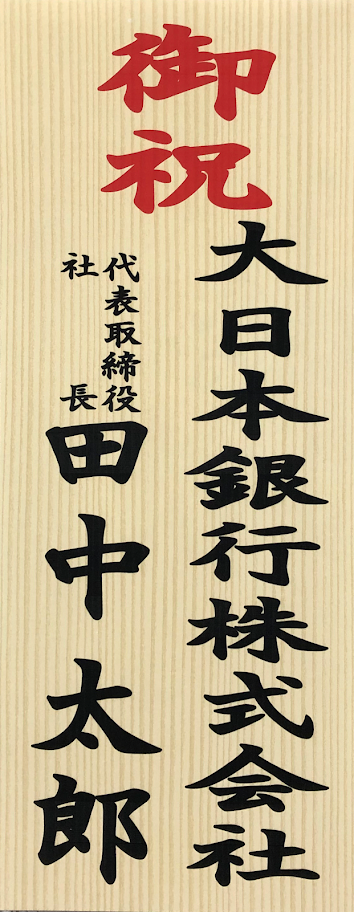 御祝
大日本銀行株式会社
代表取締役
社長
田中太郎